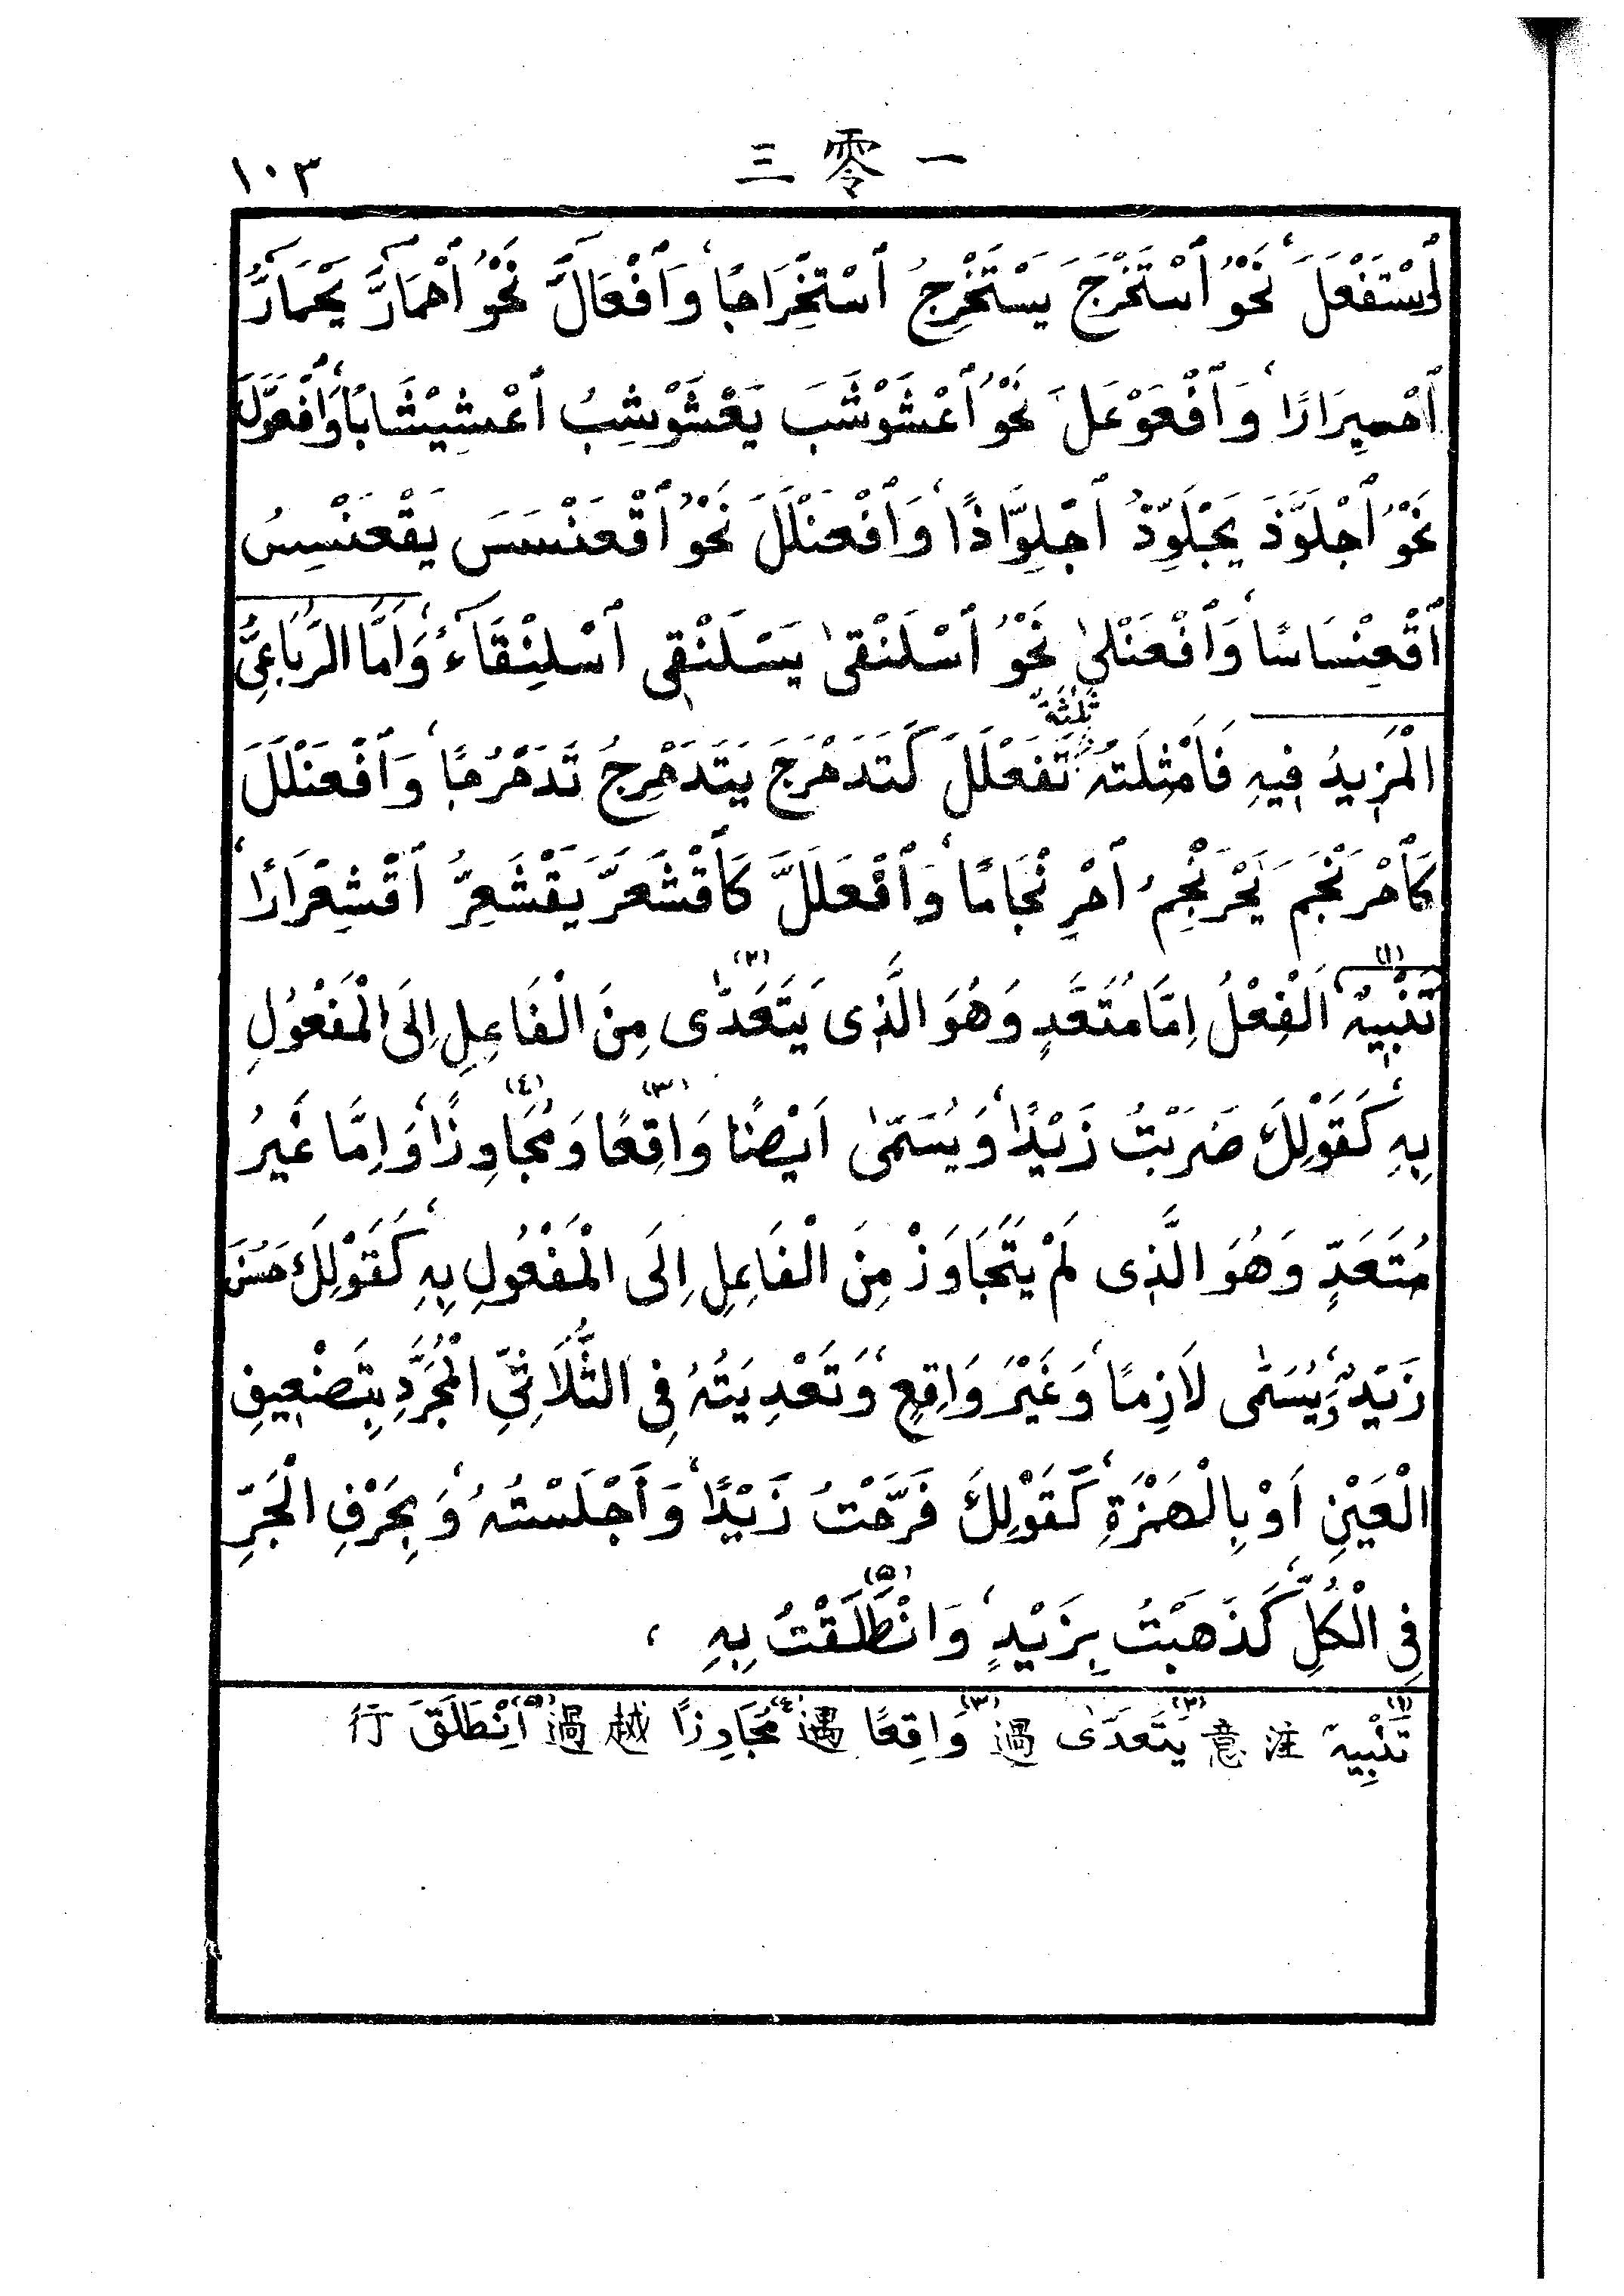 ١٠٣
三零一
ٱسْتَفْعَلَ نَحْوُ ٱسْتَخْرَجَ يَسْتَخْرِجُ ٱسْتِخْرَاجًا، وَٱفْعَالَّ نَحْوُ ٱحْمَارَّ يَحْمَارُّ
ٱحْمِيرَارًا، وَٱفْعَوْعَلَ نَحْوُ ٱعْشَوْشَبَ يَعْشَوْشِبُ ٱعْشِيْشَابًا، وَٱفْعَوَّلَ
نَحْوُ ٱجْلَوَّذَ يَجْلَوِّذُ ٱجْلِوَّاذًا، وَٱفْعَنْلَلَ نَحْوُ ٱقْعَنْسَسَ يَقْعَنْسِسُ
ٱقْعِنْسَاسًا، وَٱفْعَنْلىٰ نَحْوُ ٱسْلَنْقىٰ يَسْلَنْقِى ٱسْلِنْقَآءً، وَاَمَّا الرُّبَاعِىُّ
الْمَزِيدُ فِيهِ فَاَمْثِلَتُهُ ثَلٰثَةٌ تَفَعْلَلَ كَتَدَحْرَجَ يَتَدَحْرَجُ تَدَحْرُجًا، وَٱفْعَنْلَلَ
كَٱحْرَنْجَمَ يَحْرَنْجِمُ ٱحْرِنْجَامًا، وَٱفْعَلَلَّ كَٱقْشَعَرَّ يَقْشَعِرُّ ٱقْشِعْرَارًا،
تَنْبِيهٌ (١) اَلْفِعْلُ اِمَّا مُتَعَدٍّ وَهُوَ الَّذِى يَتَعَدّٰى (٢) مِنَ الْفَاعِلِ اِلَى الْمَفْعُولِ
بِهِ، كَقَوْلِكَ ضَرَبْتُ زَيْدًا، وَيُسَمّٰى اَيْضًا وَاقِعًا (٣) وَمُجَاوِزًا (٤)، وَاِمَّا غَيْرُ
مُتَعَدٍّ وَهُوَ الَّذِى لَمْ يَتَجَاوَزْ مِنَ الْفَاعِلِ اِلَى الْمَفْعُولِ بِهِ، كَقَوْلِكَ حَسُنَ
زَيْدٌ، وَيُسَمّٰى لَازِمًا، وَغَيْرَ وَاقِعٍ، وَتَعْدِيَتُهُ فِى الثُّلَاثِىِّ الْمُجَرَّدِ بِتَضْعِيفِ
الْعَيْنِ اَوْ بِالْهَمْزَةِ، كَقَوْلِكَ فَرَّحْتُ زَيْدًا، وَاَجْلَسْتُهُ، وَبِحَرْفِ الْجَرِّ
فِى الْكُلِّ، كَذَهَبْتُ بِزَيْدٍ، وَانْطَلَقْتُ (٥) بِهِ ،
(١) تَنْبِيهٌ 注意 (٢) يَتَعَدَّى 過 (٣) وَاقِعًا 遇 (٤) مُجَاوِزًا 越過 (٥) اَنْطَلَقَ 行